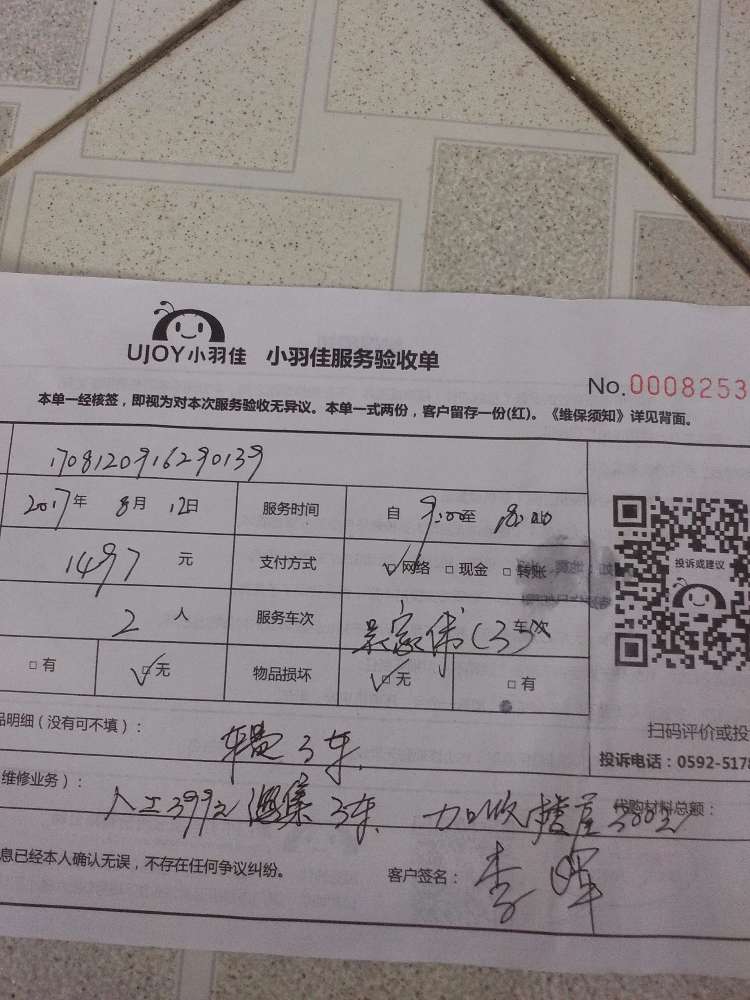 UJOY小羽佳 小羽佳服务验收单
No.0008253
本单一经核签，即视为对本次服务验收无异议。本单一式两份，客户留存一份(红)。《维保须知》详见背面。
1708120916290139
2017年 8月 12日 服务时间 自 9:00至 18:00
1497 元 支付方式 ☑网络 □现金 □转账
投诉或建议
2 人 服务车次 吴家伟(3车次
□有 ☑无 物品损坏 ☑无 □有
品明细（没有可不填）： 车费3车
扫码评价或投
投诉电话：0592-5178
维修业务）： 人工399元 3车 加收楼层300元 代购材料总额：
息已经本人确认无误，不存在任何争议纠纷。 客户签名： 李晖